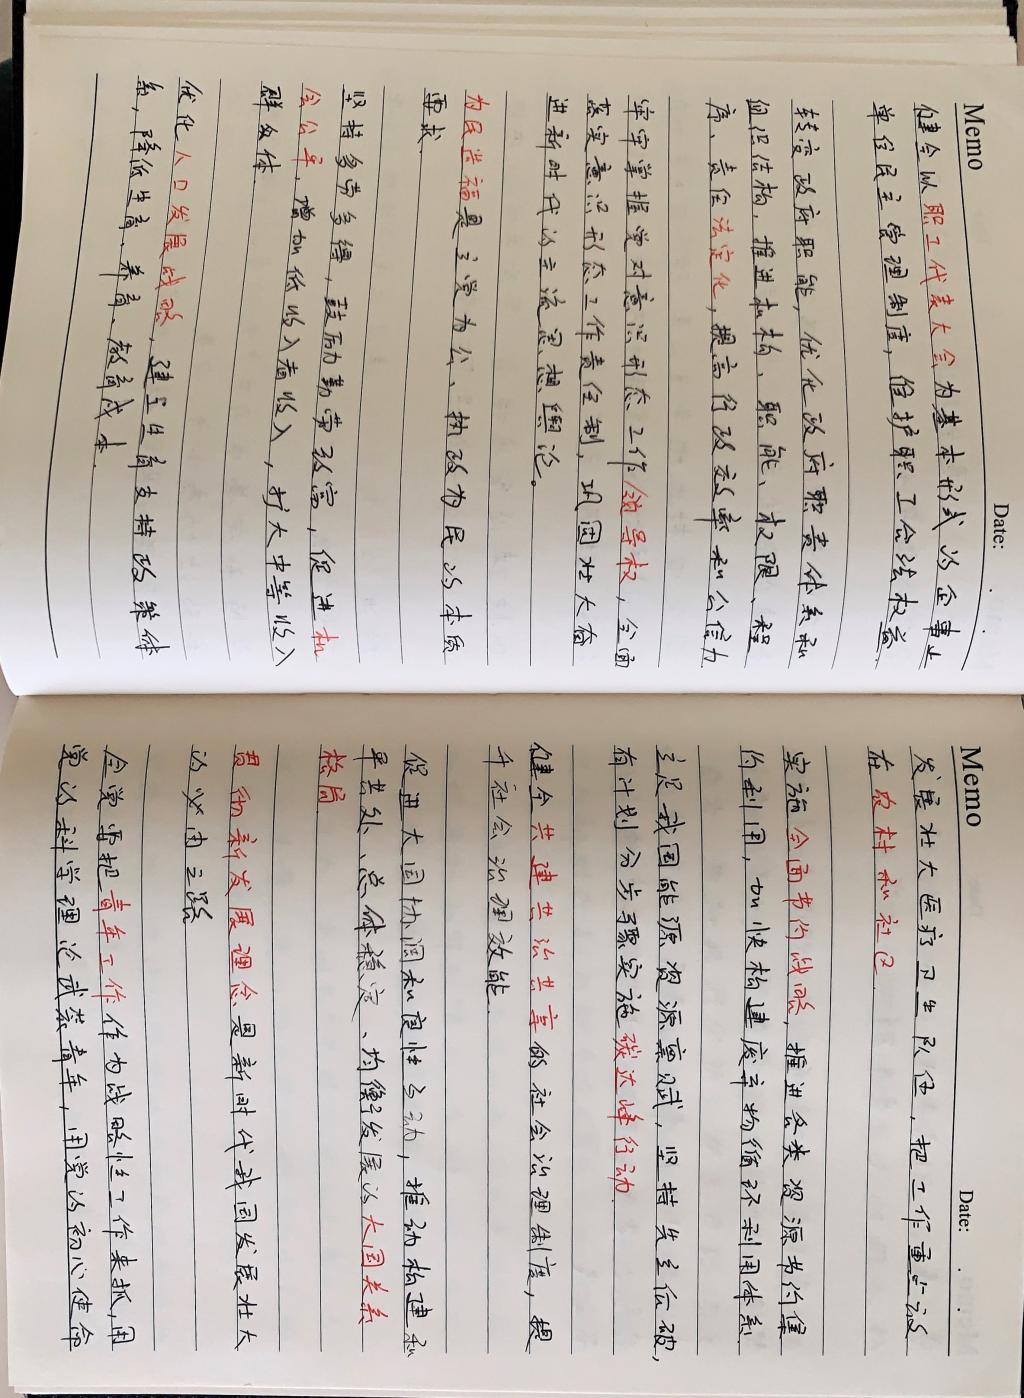 Memo
Date:
健全以职工代表大会为基本形式的企事业
单位民主管理制度，维护职工合法权益.
转变政府职能，优化政府职责体系和
组织结构，推进机构、职能、权限、程
序、责任法定化，提高行政效率和公信力
牢牢掌握党对意识形态工作领导权，全面
落实意识形态工作责任制，巩固壮大奋
进新时代的主流思想舆论。
为民造福是立党为公、执政为民的本质
要求.
坚持多劳多得，鼓励勤劳致富，促进机
会公平，增加低收入者收入，扩大中等收入
群体.
优化人口发展战略，建立生育支持政策体
系，降低生育、养育、教育成本.
Memo
Date:
发展壮大医疗卫生队伍，把工作重点放
在农村和社区.
实施全面节约战略，推进各类资源节约集
约利用，加快构建废弃物循环利用体系.
立足我国能源资源禀赋，坚持先立后破，
有计划分步骤实施碳达峰行动.
健全共建共治共享的社会治理制度，提
升社会治理效能.
促进大国协调和良性互动，推动构建和
平共处、总体稳定、均衡发展的大国关系
格局.
贯彻新发展理念是新时代我国发展壮大
的必由之路
全党要把青年工作作为战略性工作来抓，用
党的科学理论武装青年，用党的初心使命